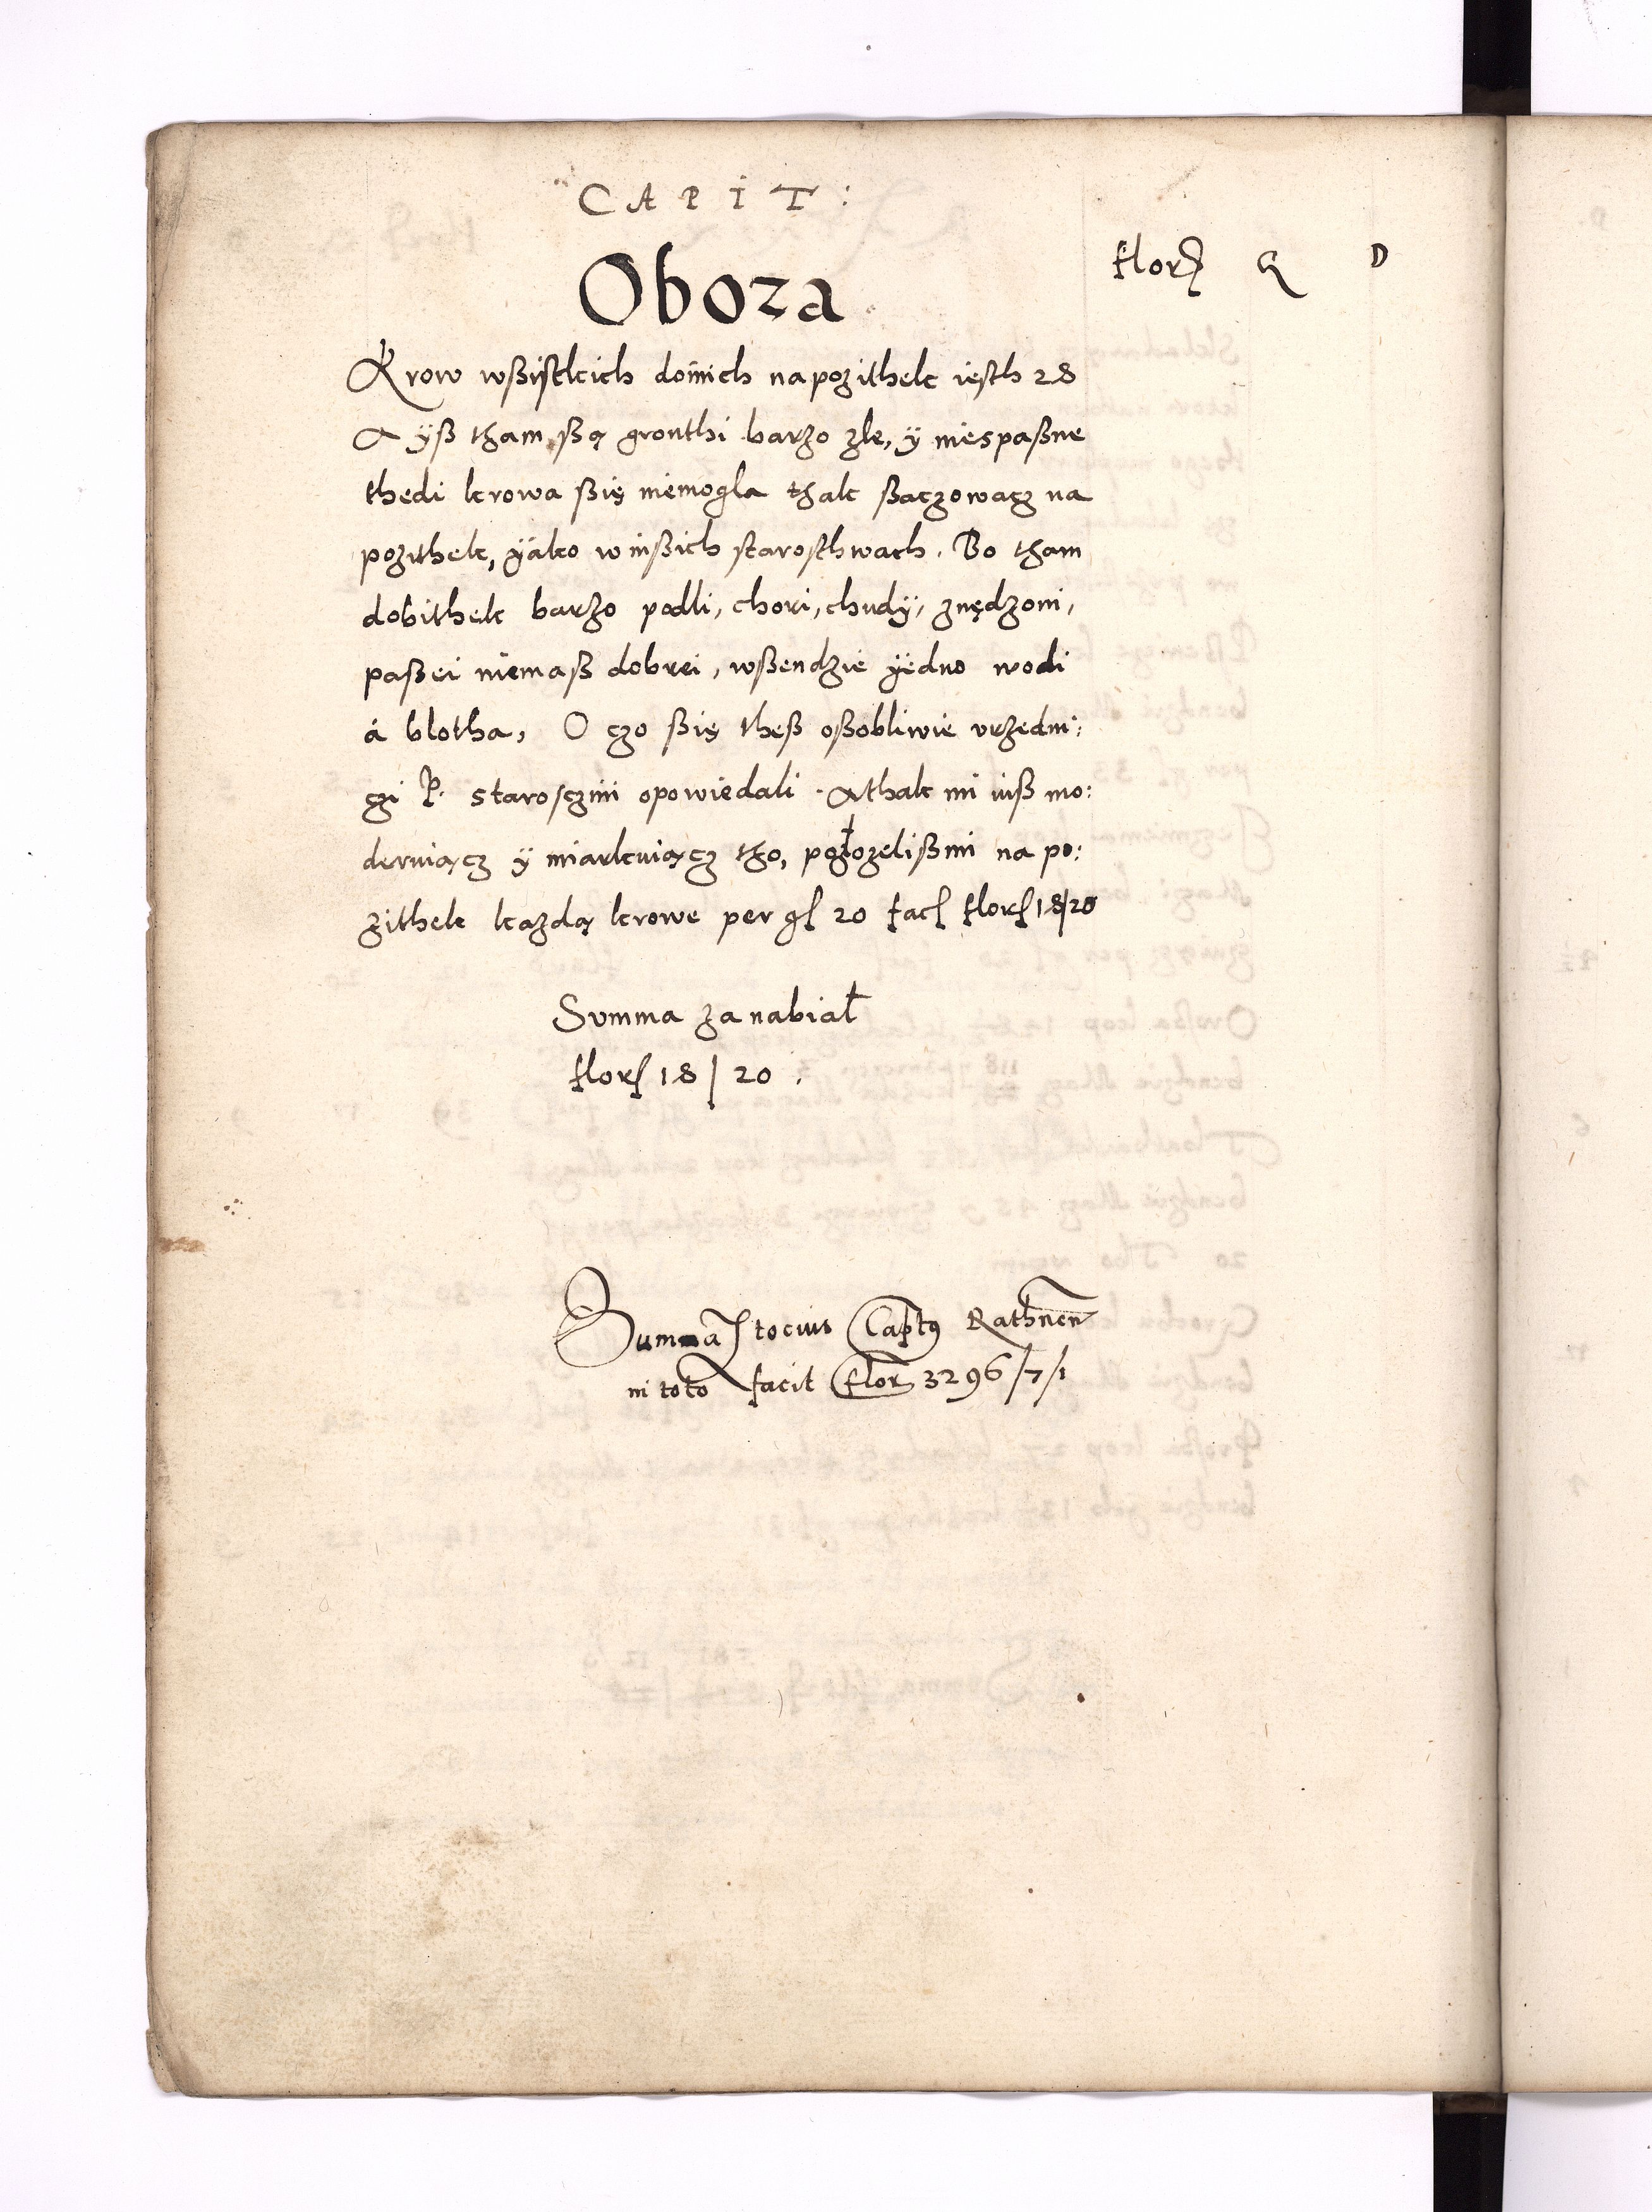 CAPIT:
Oboza
flor G D
Krow wßistkich doinich na pozithek iesth 28
A yß tham ßą gronthi barzo zle, ÿ niespaßne
thedi krowa ßię niemogla thak ßaczowacz na
pozithek, ÿako w inßich starosthwach. Bo tham
dobithek barzo podli, chori, chudÿ, znędzoni,
paßei niemaß dobrei, wßendzie ÿedno wodi
á blotha, O czo ßię theß oßobliwie vrzedni:
czi P. starosczini opowiedali. Athak mi iuß mo:
deruiącz ÿ miarkuiącz tho, położelißmi na po:
zithek kazdą krowe per gſ 20 facſ florſ 18/20
Summa za nabiał
florſ 18/20.
Summa tocius Captus Rathnen
in toto facit flor 3296/7/1